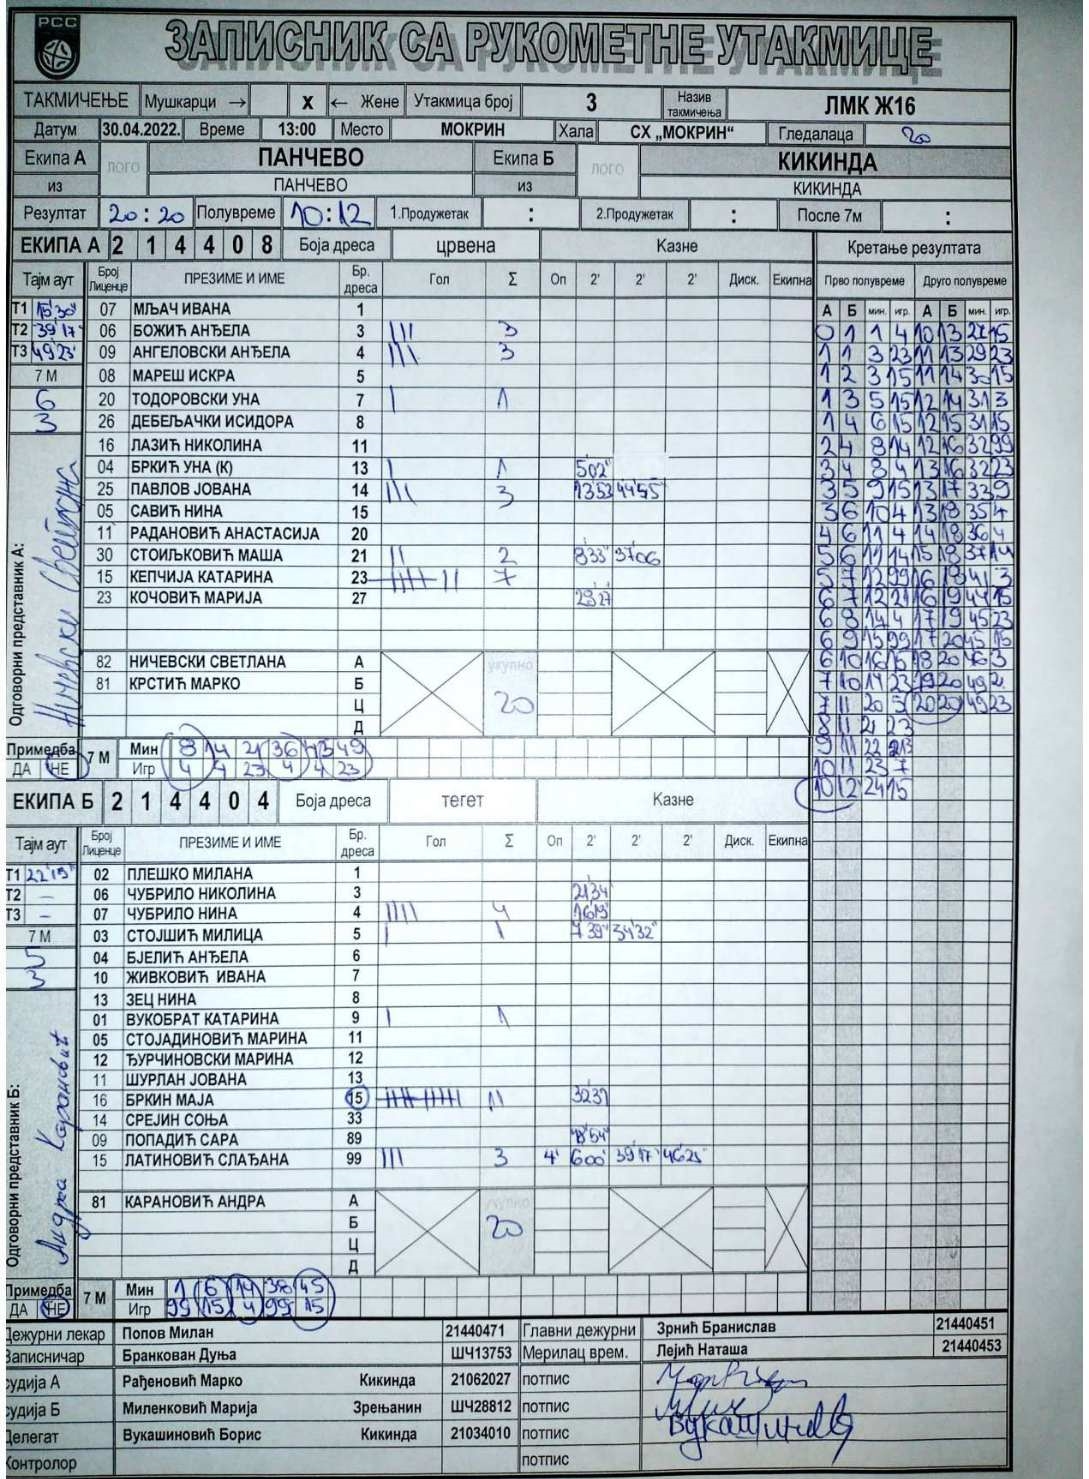 РСС
ЗАПИСНИК СА РУКОМЕТНЕ УТАКМИЦЕ
ТАКМИЧЕЊЕ Мушкарци → X ← Жене Утакмица број 3 Назив такмичења ЛМК Ж16
Датум 30.04.2022. Време 13:00 Место МОКРИН Хала СХ „МОКРИН“ Гледалаца 20
Екипа А ЛОГО ПАНЧЕВО Екипа Б ЛОГО КИКИНДА
из ПАНЧЕВО из КИКИНДА
Резултат 20:20 Полувреме 10:12 1.Продужетак : 2.Продужетак : После 7м :
ЕКИПА А 2 1 4 4 0 8 Боја дреса црвена Казне Кретање резултата
Тајм аут Број Лиценце ПРЕЗИМЕ И ИМЕ Бр. дреса Гол Σ Оп 2' 2' 2' Диск. Екипна Прво полувреме Друго полувреме
А Б мин. игр. А Б мин. игр.
Т1 07 МЉАЧ ИВАНА 1
Т2 39 17 06 БОЖИЋ АНЂЕЛА 3 ||| 3
Т3 49 23 09 АНГЕЛОВСКИ АНЂЕЛА 4 ||| 3
7 М 08 МАРЕШ ИСКРА 5
6 20 ТОДОРОВСКИ УНА 7 | 1
3 26 ДЕБЕЉАЧКИ ИСИДОРА 8
16 ЛАЗИЋ НИКОЛИНА 11
04 БРКИЋ УНА (К) 13 | 1 5 02"
25 ПАВЛОВ ЈОВАНА 14 ||| 3 13 53 44 55"
05 САВИЋ НИНА 15
11 РАДАНОВИЋ АНАСТАСИЈА 20
30 СТОИЉКОВИЋ МАША 21 || 2 8 33" 37 06
15 КЕПЧИЈА КАТАРИНА 23 7
23 КОЧОВИЋ МАРИЈА 27 23 27
82 НИЧЕВСКИ СВЕТЛАНА А укупно
81 КРСТИЋ МАРКО Б 20
Ц
Д
Одговорни представник А:
0 1 1 4 10 13 27 15
1 1 3 23 11 13 29 23
1 2 3 15 11 14 30 15
1 3 5 15 12 14 31 3
1 4 6 15 12 15 31 15
2 4 8 14 12 16 32 99
3 4 8 4 13 16 32 23
3 5 9 15 13 17 33 9
3 6 10 4 13 18 35 4
4 6 11 4 14 18 36 4
5 6 11 14 15 18 37 14
5 7 12 99 16 18 41 3
6 7 12 21 16 19 44 15
6 8 14 4 17 19 45 23
6 9 15 99 17 20 45 15
6 10 16 15 18 20 46 3
7 10 17 23 19 20 49 21
7 11 20 5 20 20 49 23
8 11 21 23
9 11 22 23
10 11 23 7
10 12 24 15
Примедба 7 М Мин 8 14 21 36 43 49
ДА НЕ Игр 4 4 23 4 4 23
ЕКИПА Б 2 1 4 4 0 4 Боја дреса тегет Казне
Тајм аут Број Лиценце ПРЕЗИМЕ И ИМЕ Бр. дреса Гол Σ Оп 2' 2' 2' Диск. Екипна
Т1 22'15" 02 ПЛЕШКО МИЛАНА 1
Т2 – 06 ЧУБРИЛО НИКОЛИНА 3 21 34
Т3 – 07 ЧУБРИЛО НИНА 4 |||| 4 16 19"
7 М 03 СТОЈШИЋ МИЛИЦА 5 | 1 7 39" 34'32"
5 04 БЈЕЛИЋ АНЂЕЛА 6
3 10 ЖИВКОВИЋ ИВАНА 7
13 ЗЕЦ НИНА 8
01 ВУКОБРАТ КАТАРИНА 9 | 1
05 СТОЈАДИНОВИЋ МАРИНА 11
12 ЂУРЧИНОВСКИ МАРИНА 12
11 ШУРЛАН ЈОВАНА 13
16 БРКИН МАЈА 15 11 32 37
14 СРЕЈИН СОЊА 33
09 ПОПАДИЋ САРА 89
15 ЛАТИНОВИЋ СЛАЂАНА 99 ||| 3 4' 6 00" 39 17" 46 25"
81 КАРАНОВИЋ АНДРА А укупно
Б 20
Ц
Д
Одговорни представник Б: Андра Карановић
Примедба 7 М Мин 1 6 14 38 45
ДА НЕ Игр 99 15 4 99 15
Дежурни лекар Попов Милан 21440471 Главни дежурни Зрнић Бранислав 21440451
Записничар Бранкован Дуња ШЧ13753 Мерилац врем. Лејић Наташа 21440453
судија А Рађеновић Марко Кикинда 21062027 потпис
судија Б Миленковић Марија Зрењанин ШЧ28812 потпис
Делегат Вукашиновић Борис Кикинда 21034010 потпис
Контролор потпис